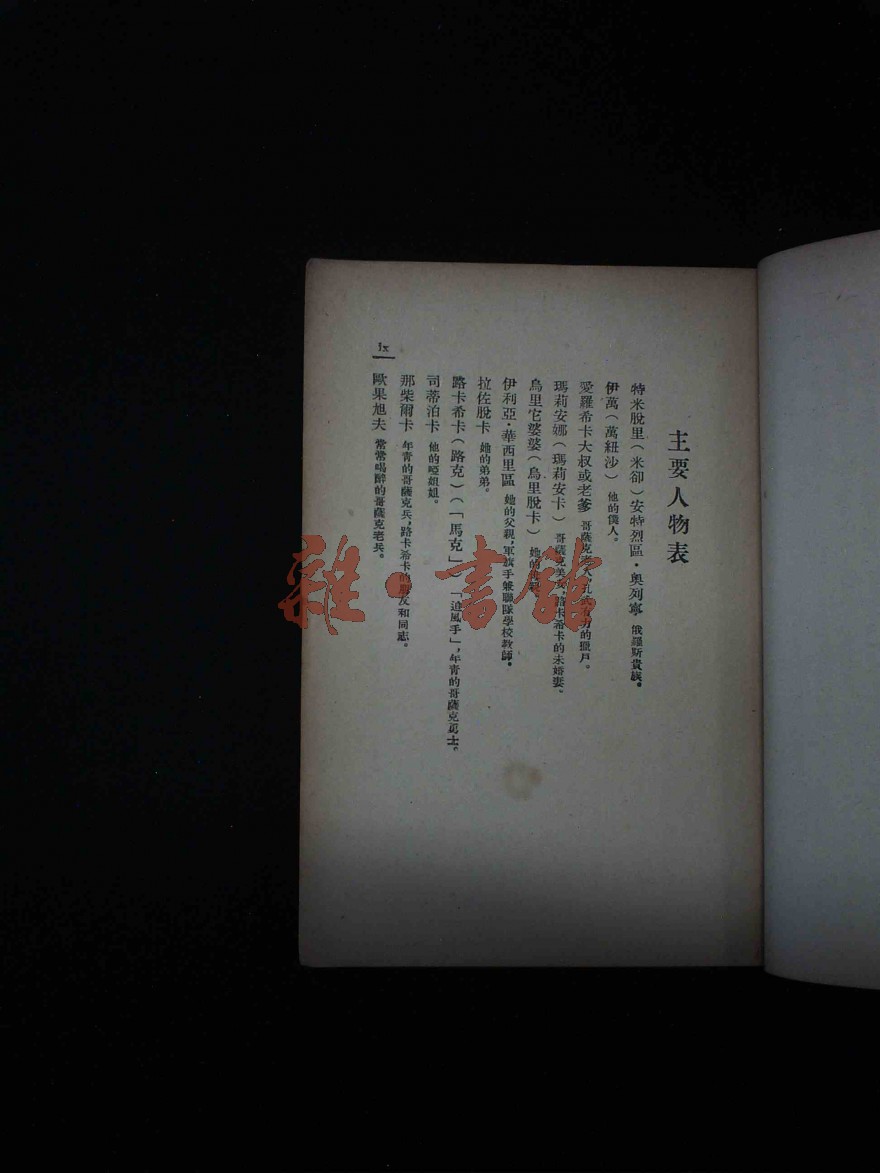 主要人物表
特米脫里(米卻)安特烈區・奧列寧 俄羅斯貴族。
伊萬(萬紐沙) 他的僕人。
愛羅希卡大叔或老爹 哥薩克老人,孔武有力的獵戶。
瑪莉安娜(瑪莉安卡) 哥薩克美女,路卡希卡的未婚妻。
烏里它婆婆(烏里脫卡) 她的母親。
伊利亞・華西里區 她的父親,軍旗手兼聯隊學校教師。
拉佐脫卡 她的弟弟。
路卡希卡(路克)(「馬克」) 「追風手」,年青的哥薩克勇士。
司蒂泊卡 他的啞姐姐。
那柴爾卡 年青的哥薩克兵,路卡希卡的朋友和同志。
歐果旭夫 常常喝醉的哥薩克老兵。
ix
雜・書館